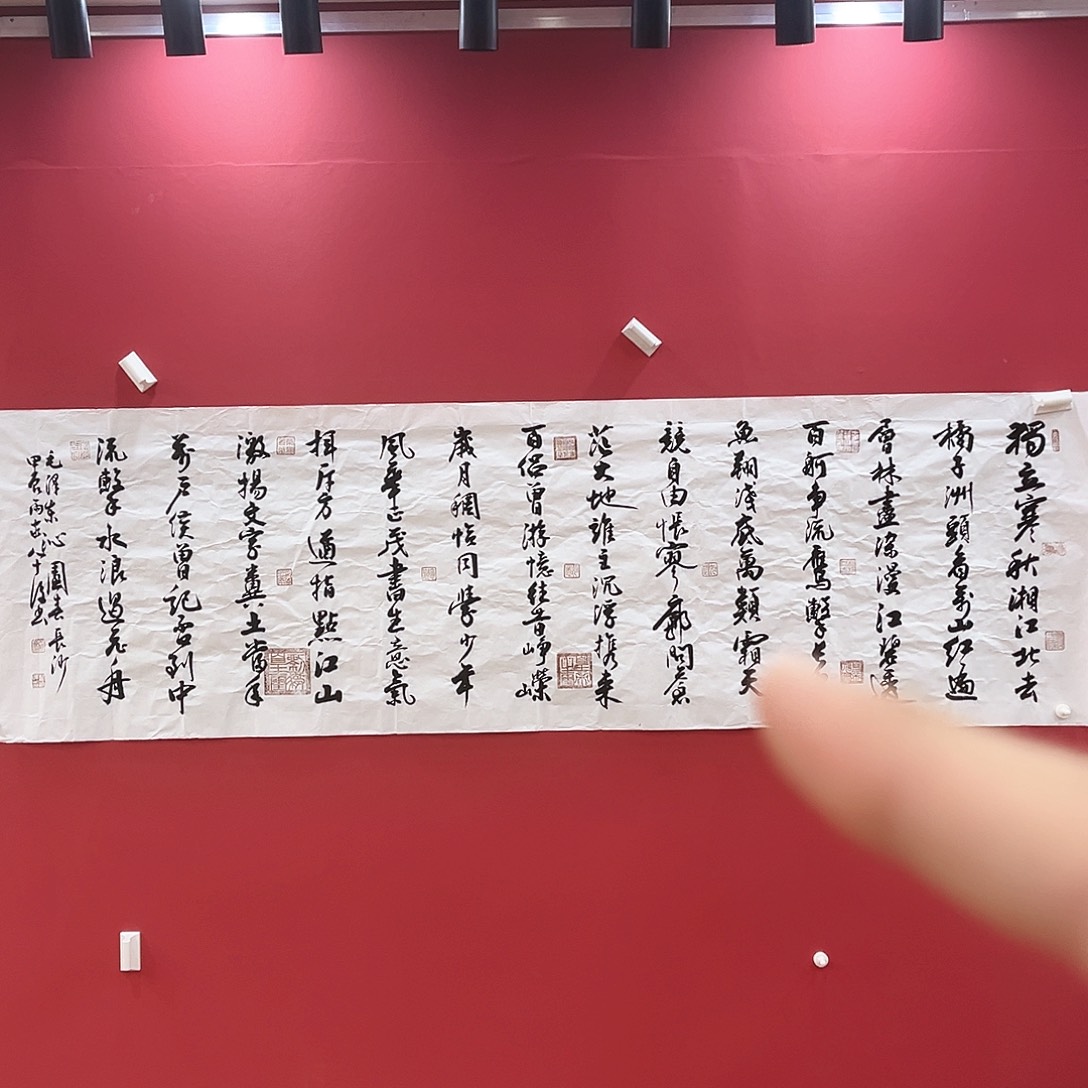 獨立寒秋湘江北去
橘子洲頭看萬山紅遍
層林盡染漫江碧透
百舸爭流鷹擊長
魚翔淺底萬類霜天
競自由悵寥廓問蒼
茫大地誰主沉浮攜來
百侶曾游憶往昔崢嶸
歲月稠恰同學少年
風華正茂書生意氣
揮斥方遒指點江山
激揚文字糞土當年
萬戶侯曾記否到中
流擊水浪遏飛舟
毛澤東沁園春長沙
甲辰八十書